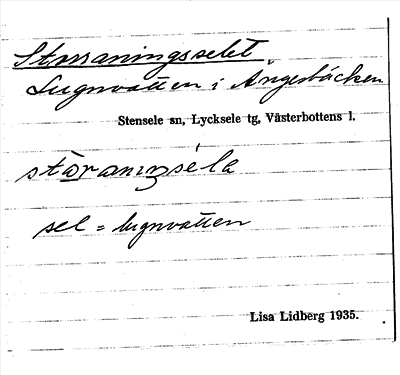 Storraningsselet
Lugnvatten i Ångesbäcken
Stensele sn, Lycksele tg, Västerbottens l.
sel = lugnvatten
Lisa Lidberg 1935.